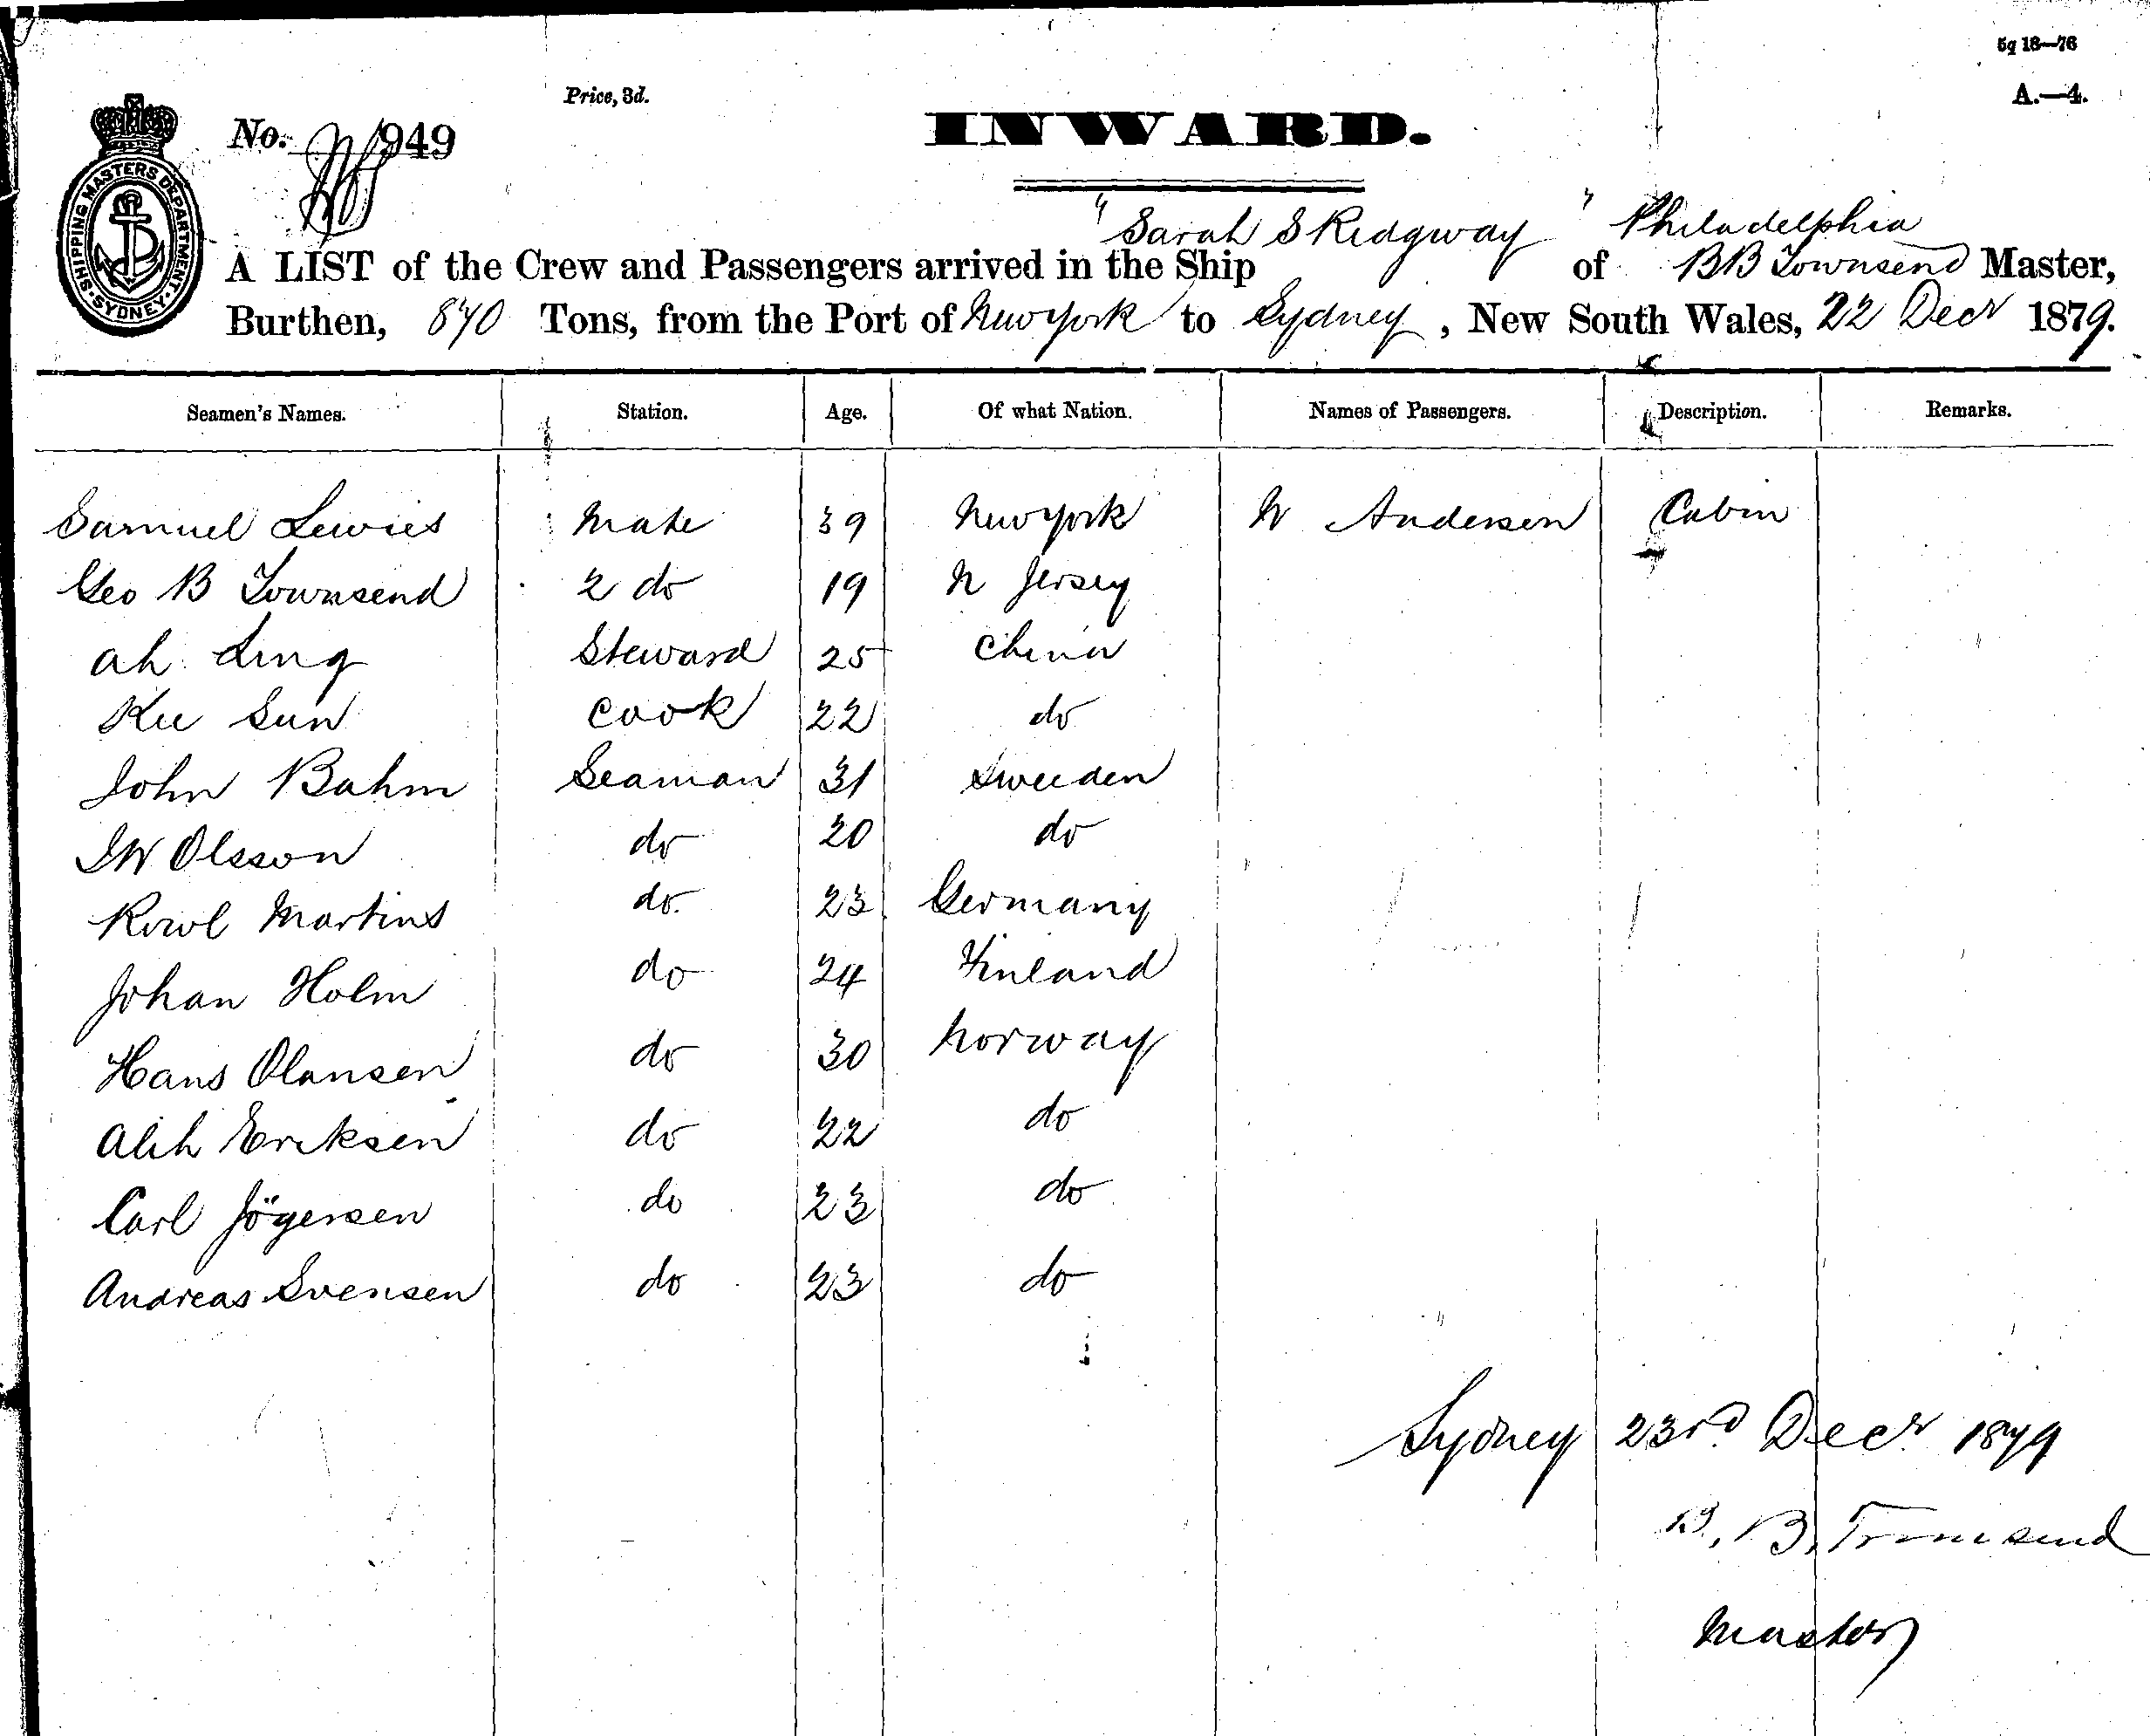 5q 18—76
Price, 3d.
A.—4.
No. 949
INWARD.
SHIPPING MASTERS DEPARTMENT. SYDNEY.
"Sarah S Ridgway" Philadelphia
A LIST of the Crew and Passengers arrived in the Ship of BB Townsend Master,
Burthen, 870 Tons, from the Port of New York to Sydney, New South Wales, 22 Decr 1879.
Seamen's Names. Station. Age. Of what Nation. Names of Passengers. Description. Remarks.
Samuel Lewies Mate 39 New York Andersen Cabin
Geo B Townsend 2 do 19 N Jersey
Ah Ling Steward 25 China
Kee Sun Cook 22 do
John Bahm Seaman 31 Sweeden
Olsson do 20 do
Martins do 23 Germany
Johan Holm do 24 Finland
Hans Olansen do 30 Norway
Eriksen do 22 do
Carl Jögersen do 23 do
Andreas Svensen do 23 do
Sydney 23rd Decr 1879
B, B, Townsend
Master